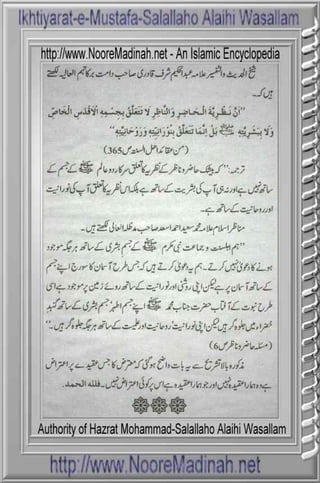 Ikhtiyarat-e-Mustafa-Salallaho Alaihi Wasallam
http://www.NooreMadinah.net - An Islamic Encyclopedia
شیخ الحدیث والتفسیر علامہ عبدالحکیم شرف قادری صاحب دامت برکاتہم العالیہ لکھتے
ہیں کہ۔
”اَنَّ نَظَرِيَّةَ الْحَاضِرِ وَالنَّاظِرِ لَا تَتَعَلَّقُ بِجِسْمِهِ الْأَقْدَسِ الْخَاصِّ
وَلَا بِبَشَرِيَّتِهِ ﷺ بَلْ اِنَّمَا تَتَعَلَّقُ بِنُوْرَانِيَّتِهِ وَرُوْحَانِيَّتِهِ“
(من عقائد اھل السنہ ص365)
ترجمہ: ”کہ بیشک حاضر و ناظر کے نظریہ کا تعلق سرکار دو عالم ﷺ کے جسم کے
ساتھ نہیں ہے اور نہ ہی آپ کی بشریت کے ساتھ ہے بلکہ اس نظریہ کا تعلق آپ کی نورانیت
اور روحانیت کے ساتھ ہے۔
مناظر اسلام علامہ محمد سعید احمد اسعد صاحب مدظلہ العالی لکھتے ہیں۔
”ہم اہلسنت و جماعت نبی مکرم ﷺ کے جسم بشری کے ساتھ ہر جگہ موجود
ہونے کا دعویٰ نہیں کرتے۔ ہم یہ دعویٰ کرتے ہیں کہ جس طرح آسمان کا سورج اپنے جسم
کے ساتھ آسمان پر ہے لیکن اپنی روشنی اور نورانیت کے ساتھ روئے زمین پر موجود ہے اسی
طرح نبوت کے آفتاب حضرت جناب محمد ﷺ اپنے جسم اطہر جسم بشری کے ساتھ گنبد
خضراء میں جلوہ گر ہیں لیکن اپنی نورانیت روحانیت اور علمیت کے ساتھ ہر جگہ جلوہ گر ہیں۔“
(مسئلہ حاضر و ناظر ص6)
مذکورہ بالا تشریح سے یہ بات واضح ہو گئی کہ معترض کا جس عقیدے پر اعتراض
ہے وہ ہمارا عقیدہ نہیں اور جو ہمارا عقیدہ ہے اس پر کوئی اعتراض نہیں۔ فللہ الحمد.
Authority of Hazrat Mohammad-Salallaho Alaihi Wasallam
http://www.NooreMadinah.net